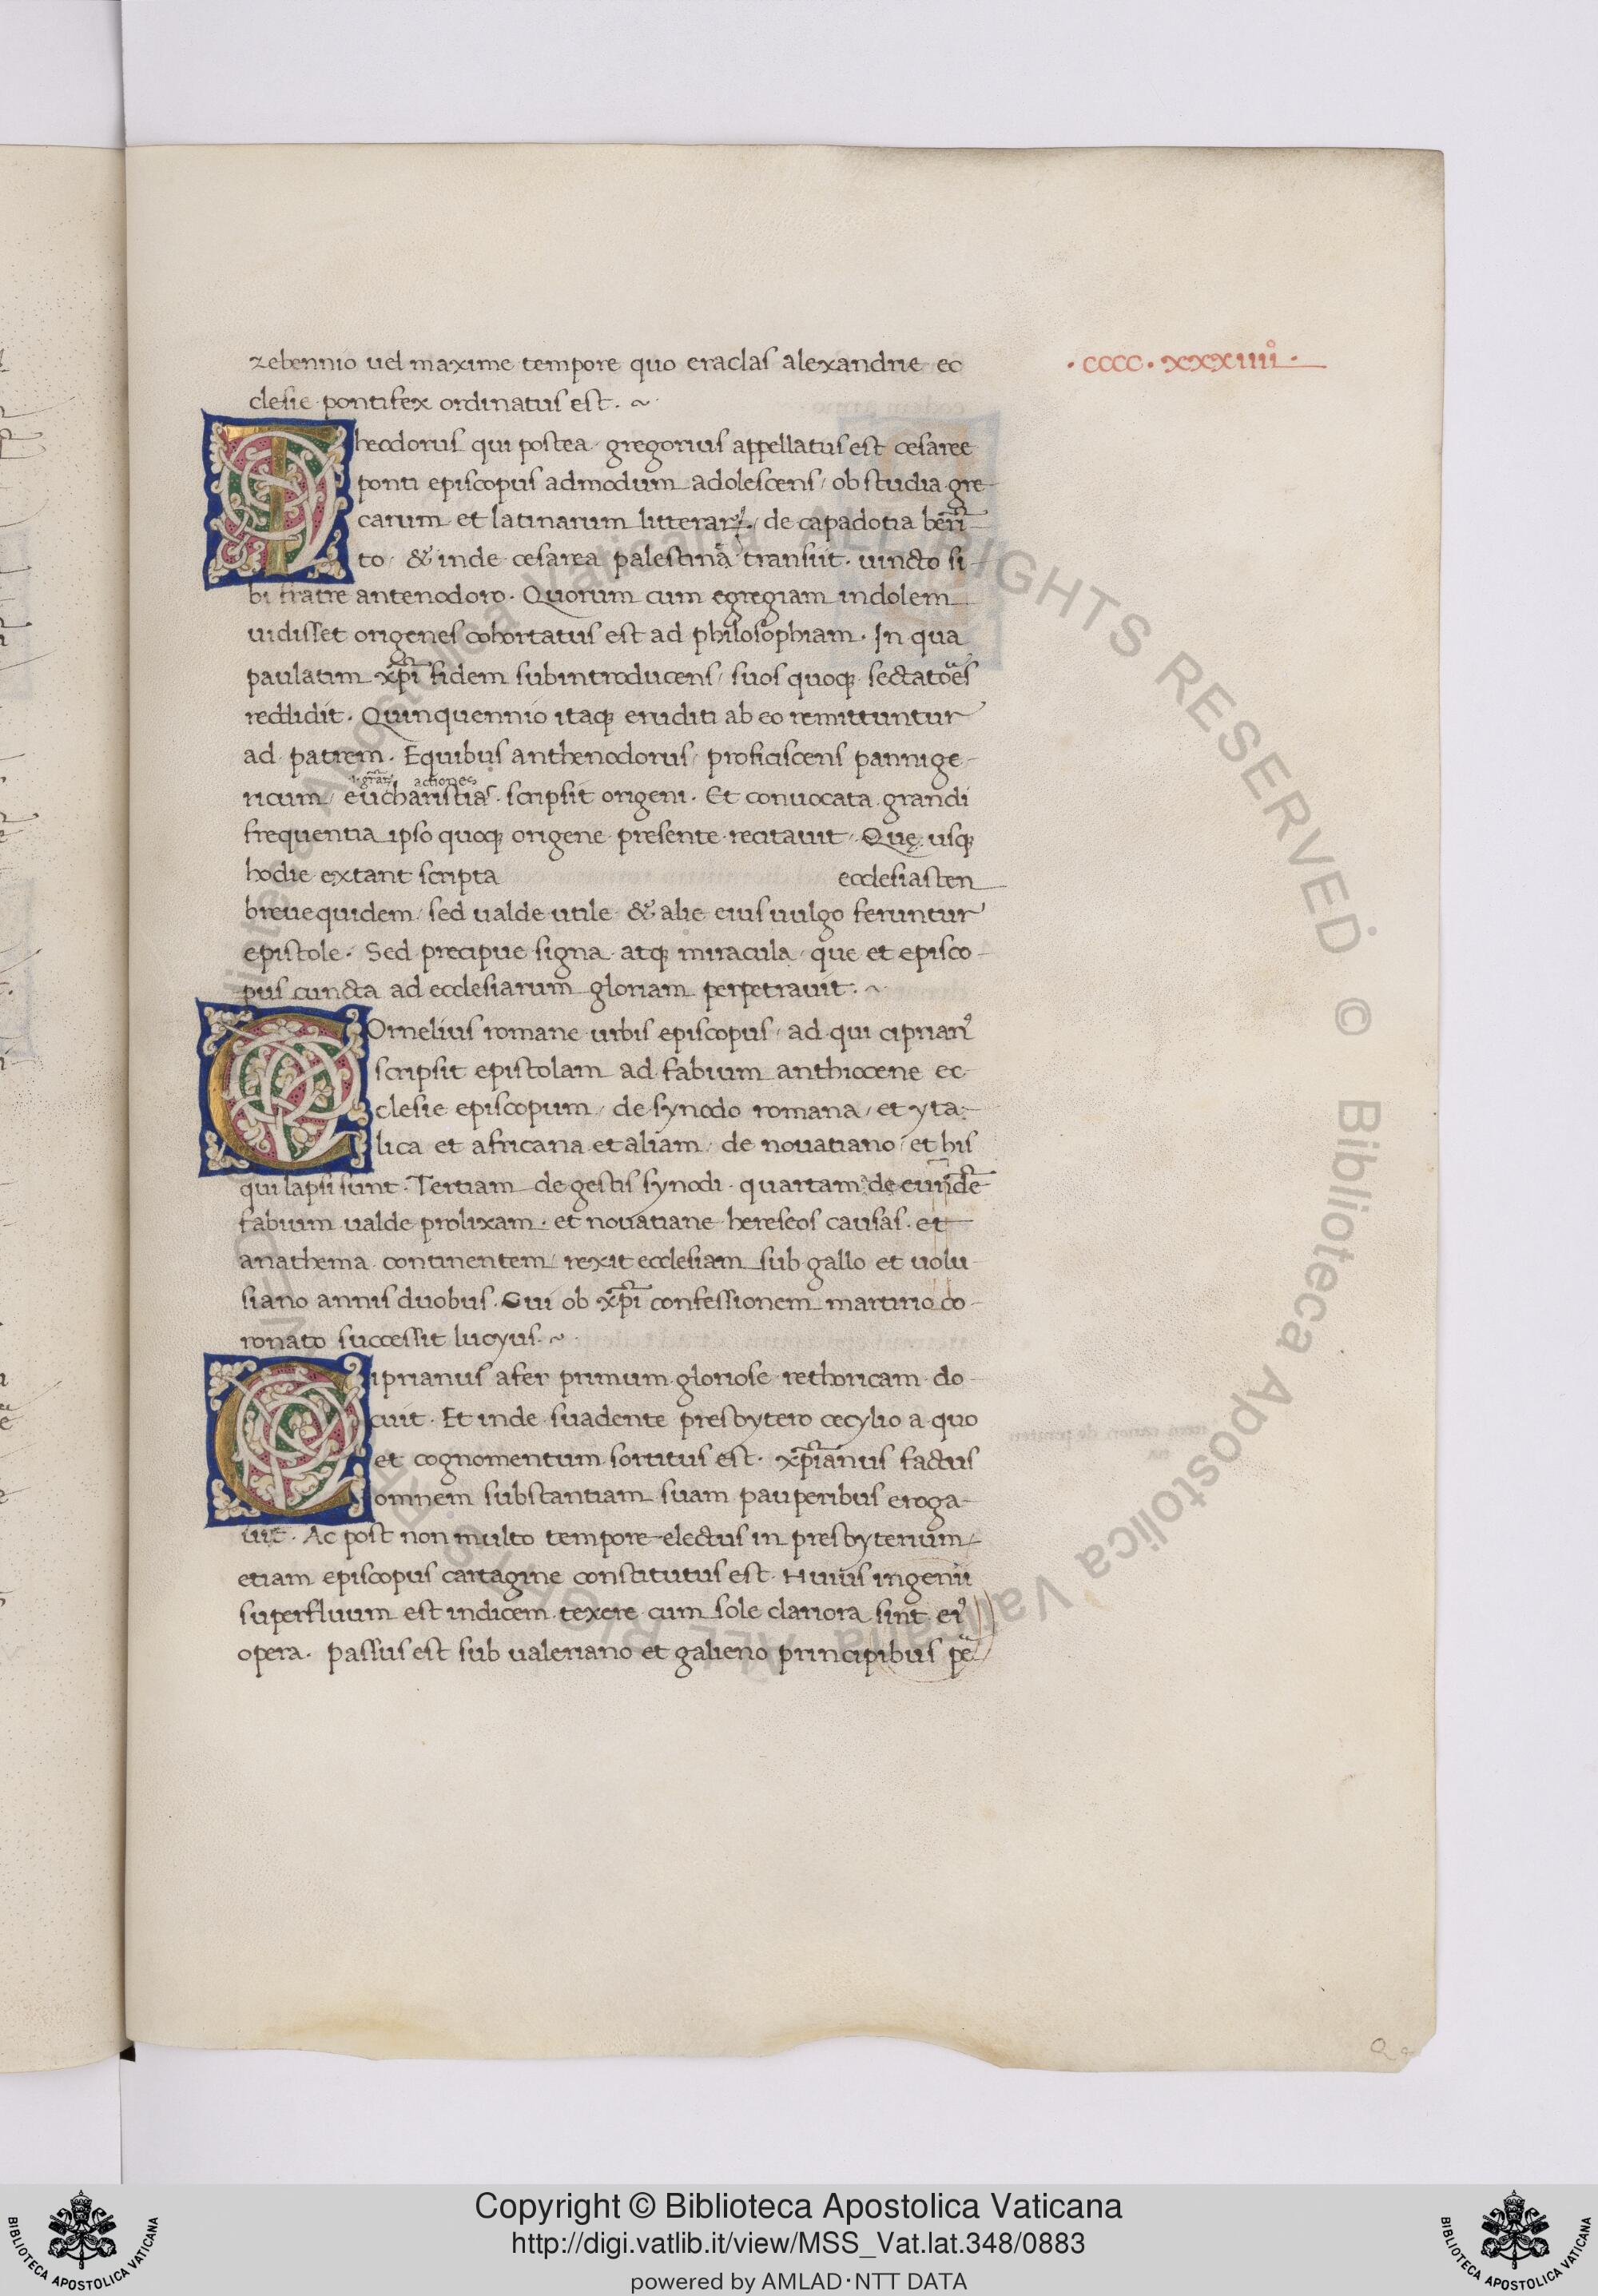 zebennio uel maxime tempore quo eraclas alexandrie ec
clesie pontifex ordinatus est . ~
· cccc · xxxiiii° ·
Theodorus qui postea gregorius appellatus est cesaree
ponti episcopus admodum adolescens / ob studia gre-
carum et latinarum litterarꝝ / de capadotia beri̅-
to / & inde cesarea palestina transiit . uincto si-
bi fratre antenodoro . Quorum cum egregiam indolem
uidisset origenes cohortatus est ad philosophiam . In qua
paulatim xp̅i fidem subintroducens / suos quoqꝫ sectatões
reddidit . Quinquennio itaqꝫ eruditi ab eo remittuntur
ad patrem . Equibus anthenodorus / proficiscens pannige-
.i. gr̅aꝝ actiones
ricum / eucharistias . scripsit origeni . Et conuocata grandi
frequentia ipso quoqꝫ origene presente recitauit / Quę usqꝫ
hodie extant scripta ecclesiasten
breue quidem / sed ualde utile & alie eius uulgo feruntur
epistole . Sed precipue signa atqꝫ miracula / que et episco-
pus cuncta ad ecclesiarum gloriam perpetrauit . ~
COrnelius romane urbis episcopus / ad qui ciprian⁹
scripsit epistolam ad fabium anthiocene ec-
clesie episcopum / de synodo romana / et yta-
lica et africana et aliam / de nouatiano / et his
qui lapsi sunt . Tertiam de gestis synodi . quartam de eun̅de̅
fabium ualde prolixam . et nouatiane hereseos causas . et
anathema continentem / rexit ecclesiam sub gallo et uolu-
siano annis duobus . Cui ob xp̅i confessionem martirio co-
ronato successit lucyus . ~
Ciprianus afer primum gloriose rethoricam do-
cuit . Et inde suadente presbytero cecylio a quo
et cognomentum sortitus est . xp̅ianus factus
omnem substantiam suam pauperibus eroga-
uit . Ac post non multo tempore electus in presbyterium /
etiam episcopus cartagine constitutus est . Huius ingenii
superfluum est indicem texere cum sole clariora sint ei⁹
opera . Passus est sub ualeriano et galieno principibus pe̅
Biblioteca Apostolica Vaticana ALL RIGHTS RESERVED © Biblioteca Apostolica Vaticana ALL RIGHTS RESERVED
Copyright © Biblioteca Apostolica Vaticana
http://digi.vatlib.it/view/MSS_Vat.lat.348/0883
powered by AMLAD·NTT DATA
BIBLIOTECA APOSTOLICA VATICANA
BIBLIOTECA APOSTOLICA VATICANA